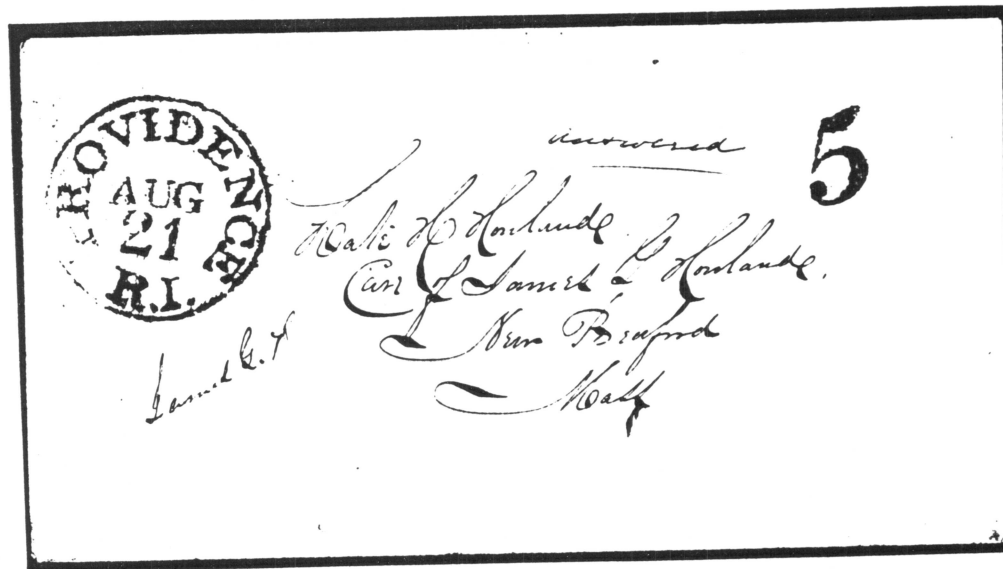 PROVIDENCE
AUG
21
R.I.
answered
5
Kate H Howlande
Care of James L Howlande.
New Bedford
Mass